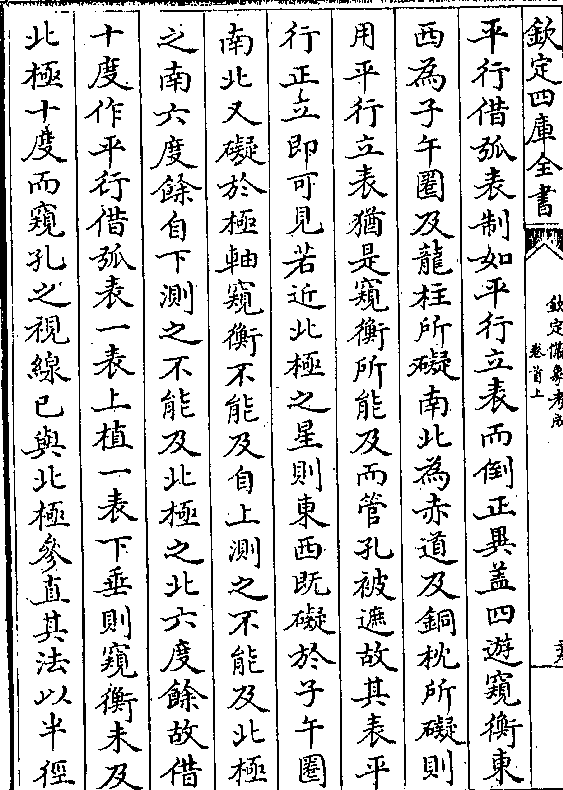 欽定四庫全書
欽定儀象考成
卷首上
平行借弧表制如平行立表而倒正異蓋四遊窺衡東
西為子午圈及龍柱所礙南北為赤道及銅枕所礙則
用平行立表猶是窺衡所能及而管孔被遮故其表平
行正立即可見若近北極之星則東西既礙於子午圈
南北又礙於極軸窺衡不能及自上測之不能及北極
之南六度餘自下測之不能及北極之北六度餘故借
十度作平行借弧表一表上植一表下垂則窺衡未及
北極十度而窺孔之視線已與北極參直其法以半徑